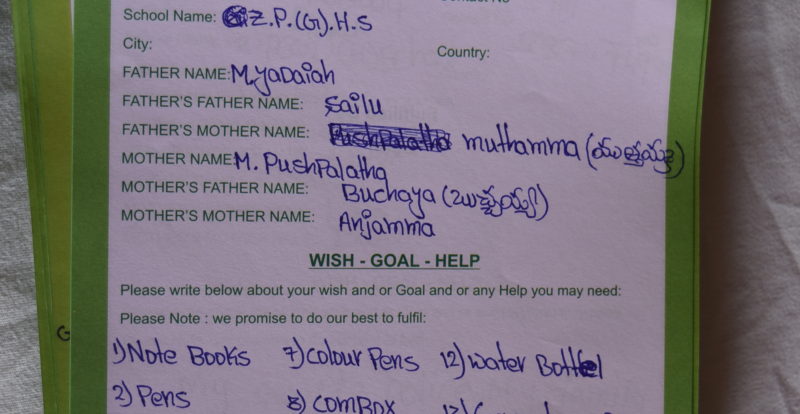 School Name: Z.P.(G).H.S
City: Country:
FATHER NAME: M.yadaiah
FATHER'S FATHER NAME: Sailu
FATHER'S MOTHER NAME: Pushpalatha muthamma (ముత్తమ్మ)
MOTHER NAME: M. PushPalatha
MOTHER'S FATHER NAME: Buchaya (బుచ్చయ్య)
MOTHER'S MOTHER NAME: Anjamma
WISH - GOAL - HELP
Please write below about your wish and or Goal and or any Help you may need:
Please Note : we promise to do our best to fulfil:
1) Note Books 7) Colour Pens 12) water Bottel
2) Pens 8)ComBox